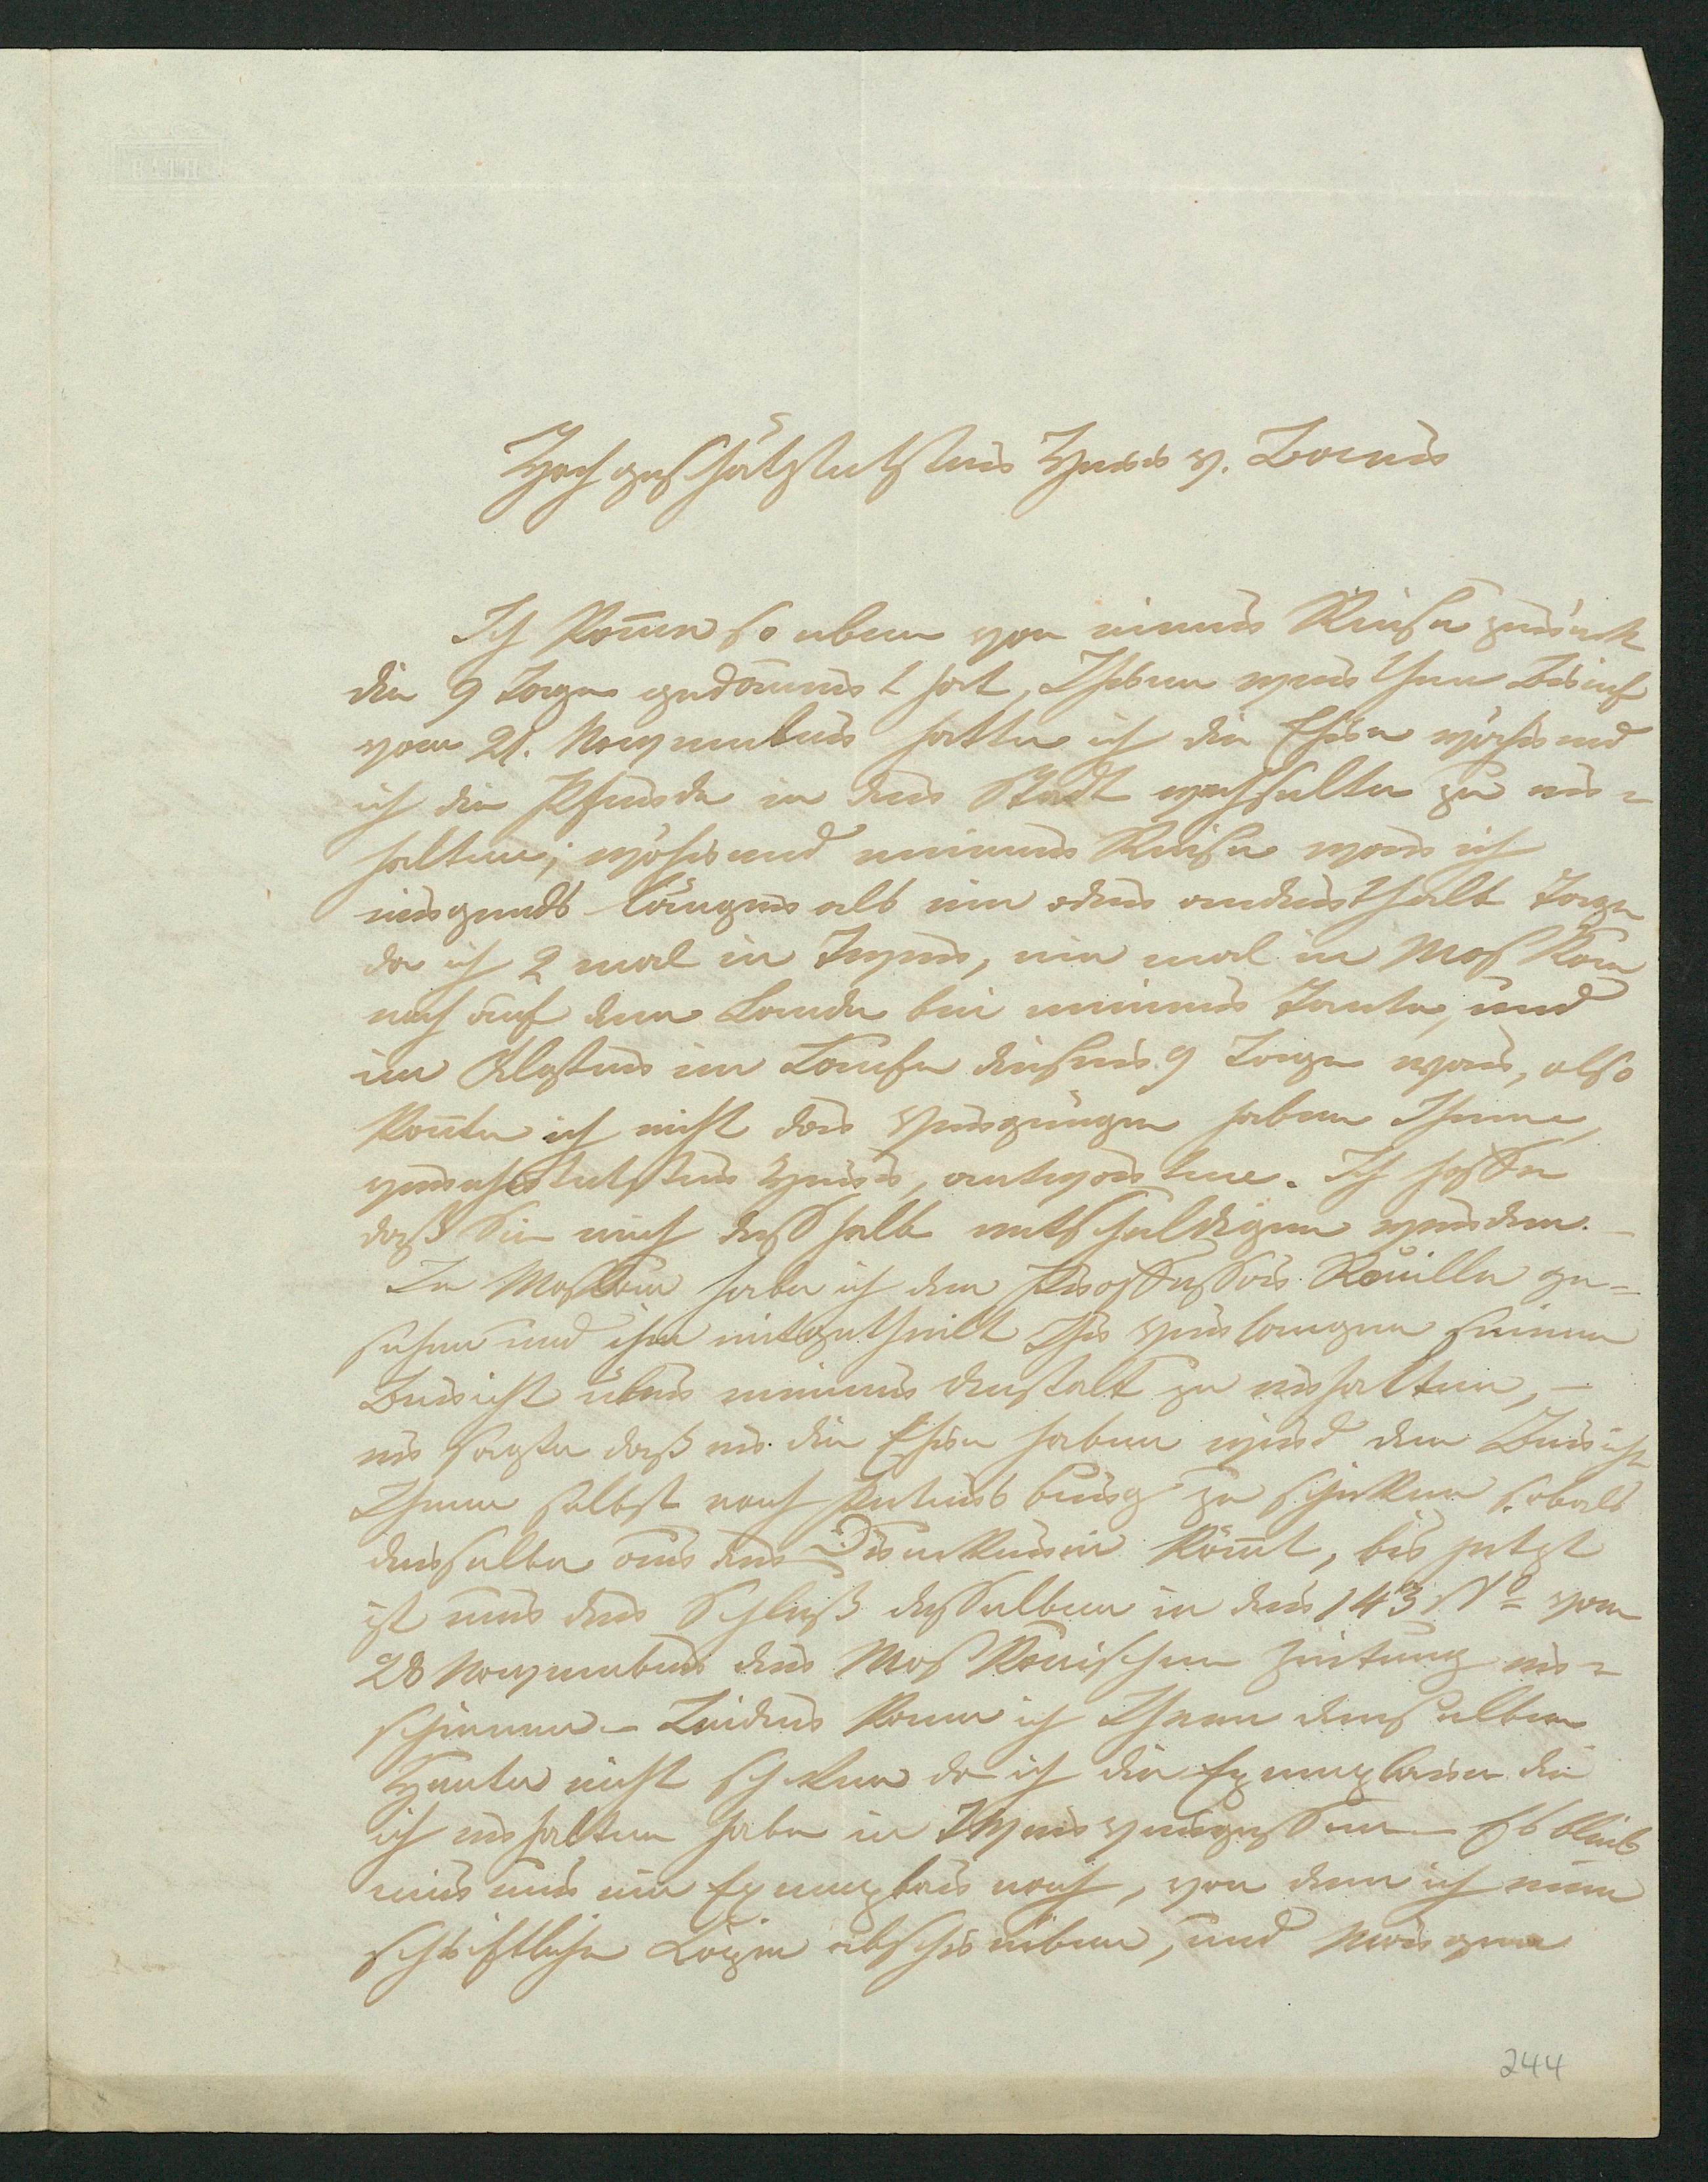 BATH
Hochgeschätztetster Herr v. Baer
Ich kom̄e so eben von einer Reise zurück
die 9 Tage gedauert hat, Ihren werthen Brief
vom 21. November hatte ich die Ehre während
ich die Pferde in der Stadt wechselte zu er-
halten; während meiner Reise war ich
nirgends länger als ein oder anderthalb Tage
da ich 2 mal in Twer, ein mal in Moskau
auch auf dem Lande bei meiner Tante, und
im Kloster im Laufe dieser 9 Tage war, also
kon̄te ich nicht das Vergnügen haben Ihnen,
verehrtetster Herr, antworten. Ich hoffe
daß Sie mich desshalb entschuldigen werden.
In Moskau habe ich den Proffessor Rouille ge-
sehen und ihm mitgetheilt Ihr Verlangen seinen
Bericht über meiner Anstalt zu erhalten, –
er sagte daß er die Ehre haben wird den Bericht
Ihnen selbst nach Petersburg zu schicken sobald
derselbe aus der Druckerei kom̄t, bis jetzt
ist nur der Schluß desselben in der 143 № vom
28 November der Moskauischen Zeitung er-
schienen – Leider kann ich Ihnen denselben
Heute nicht schicken da ich die Exemplaire die
ich erhalten habe in Twer vergessen – Es blieb
mir nur ein Exemplar noch, von dem ich eine
schriftliche Copie abschreiben, und Morgen
244